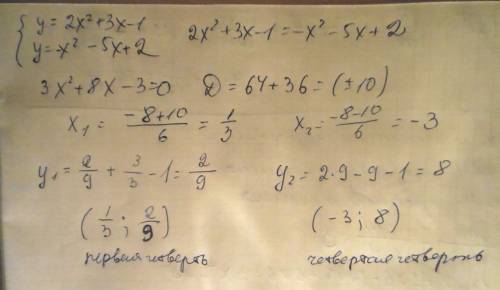 { y = 2x² + 3x - 1
y = -x² - 5x + 2
2x² + 3x - 1 = -x² - 5x + 2
3x² + 8x - 3 = 0 D = 64 + 36 = (±10)
x₁ = (-8+10)/6 = 1/3 x₂ = (-8-10)/6 = -3
y₁ = 2/9 + 3/3 - 1 = 2/9 y₂ = 2·9 - 9 - 1 = 8
(1/3; 2/9) (-3; 8)
первая четверть четвертая четверть